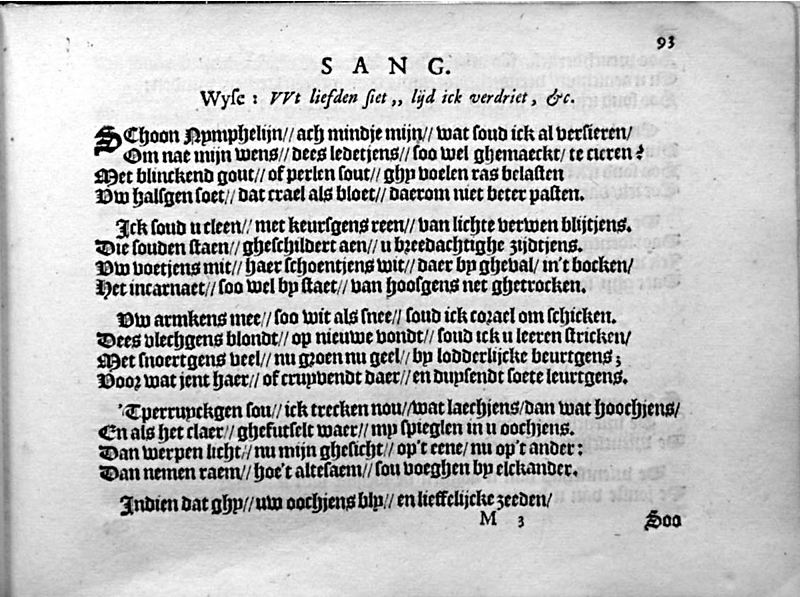 93
SANG.
Wyſe : VVt liefden ſiet „ lijd ick verdriet, &c.
SChoon Nymphelijn// ach mindje mijn// wat soud ick al versieren/
Om nae mijn wens// dees ledetjens// soo wel ghemaeckt/ te cieren?
Met blinckend gout// of perlen sout// ghy voelen ras belasten
Vw halsgen soet// dat crael als bloet// daerom niet beter pasten.
Ick soud u cleen// met keursgens reen// van lichte verwen blijtjens.
Die souden staen// gheschildert aen// u breedachtighe zijdtjens.
Vw voetjens mit// haer schoentjens wit// daer by gheval/ in't bocken/
Het incarnaet// soo wel by staet// van hoosgens net ghetrocken.
Vw armkens mee// soo wit als snee// soud ick corael om schicken.
Dees vlechgens blondt// op nieuwe vondt// soud ick u leeren stricken/
Met snoertgens veel// nu groen nu geel// by lodderlijcke beurtgens;
Voor wat jent haer// of cruyvendt daer// en duysendt soete leurtgens.
'Tperruyckgen sou// ick trecken nou// wat laechjens/ dan wat hoochjens/
En als het claer// ghefutselt waer// my spieglen in u oochjens.
Dan werpen licht// nu mijn ghesicht// op't eene/ nu op't ander:
Dan nemen raem// hoe't altesaem// sou voeghen by elckander.
Indien dat ghy// uw oochjens bly// en lieffelijcke zeeden/
M 3
Soo